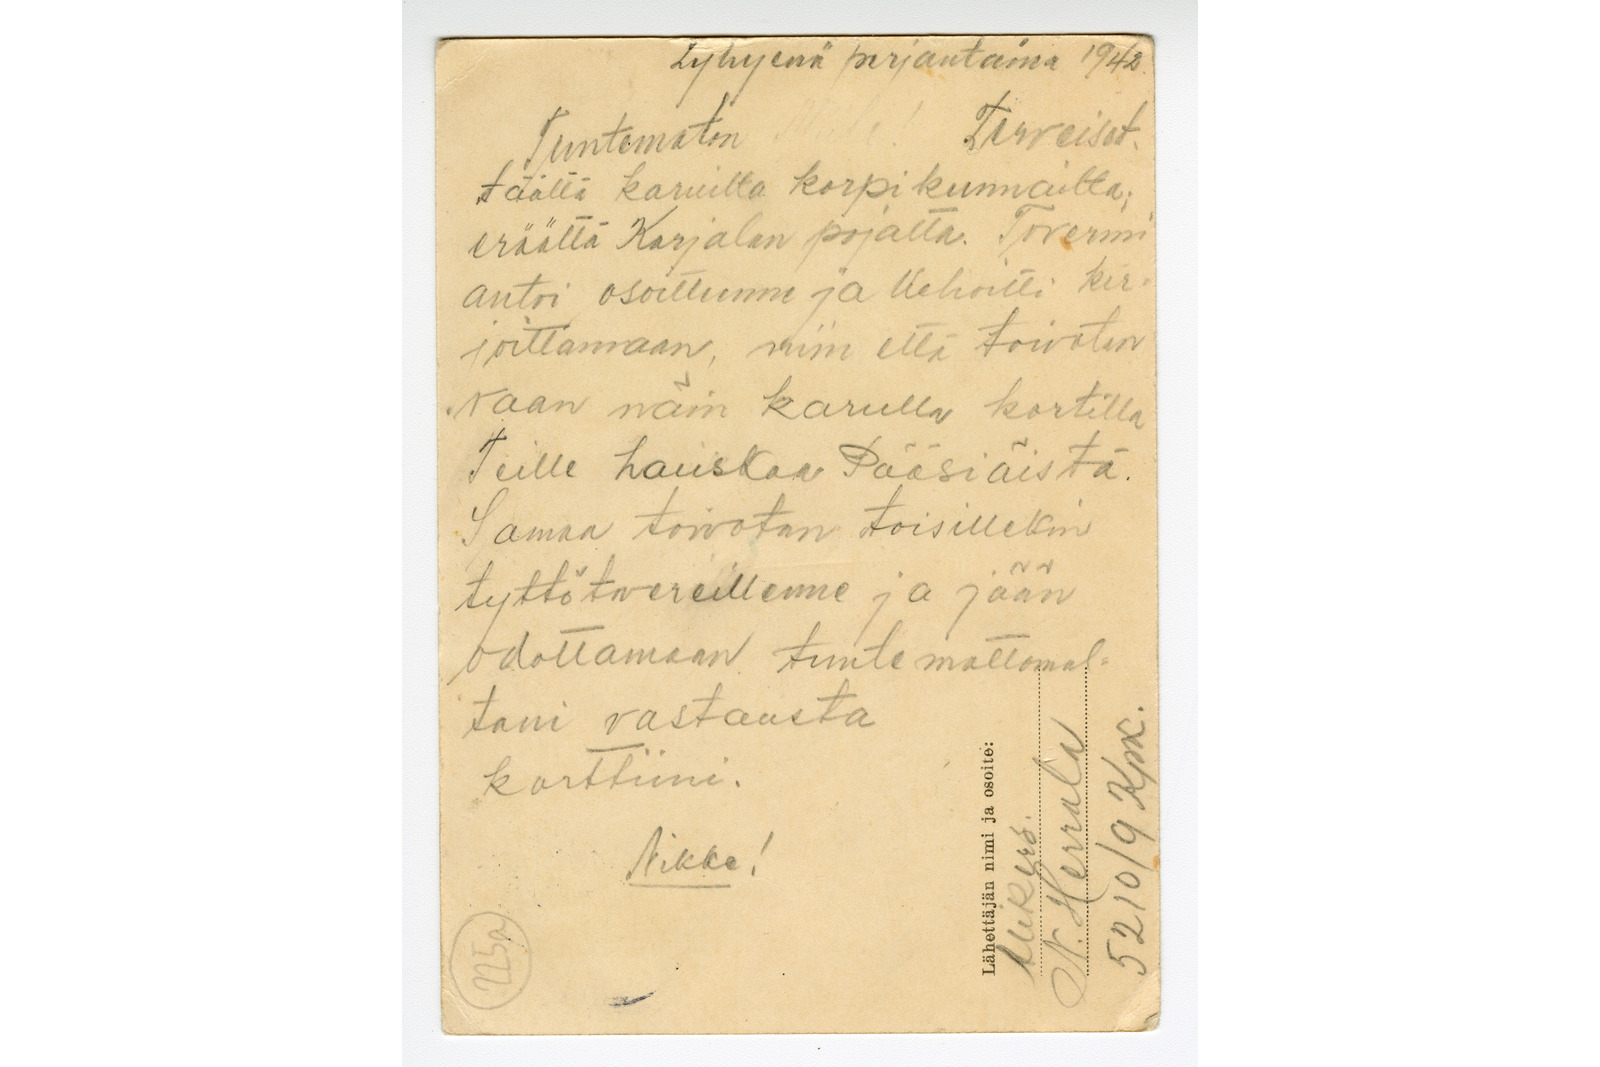 Lyhyenä perjantaina 1942.
Tuntematon Terveiset.
täältä karuilta korpikunnailta,
eräältä Karjalan pojalta. Toverini
antoi osoitteenne ja kehoitti kir-
joittamaan, niin että toivotan
vaan näin karulla kortilla
Teille hauskaa Pääsiäistä.
Samaa toivotan toisillekin
tyttötovereillenne ja jään
odottamaan tuntemattomal-
tani vastausta
korttiini.
Nikke!
225a
Lähettäjän nimi ja osoite:
N. Herrala
5210/9 Kpk.